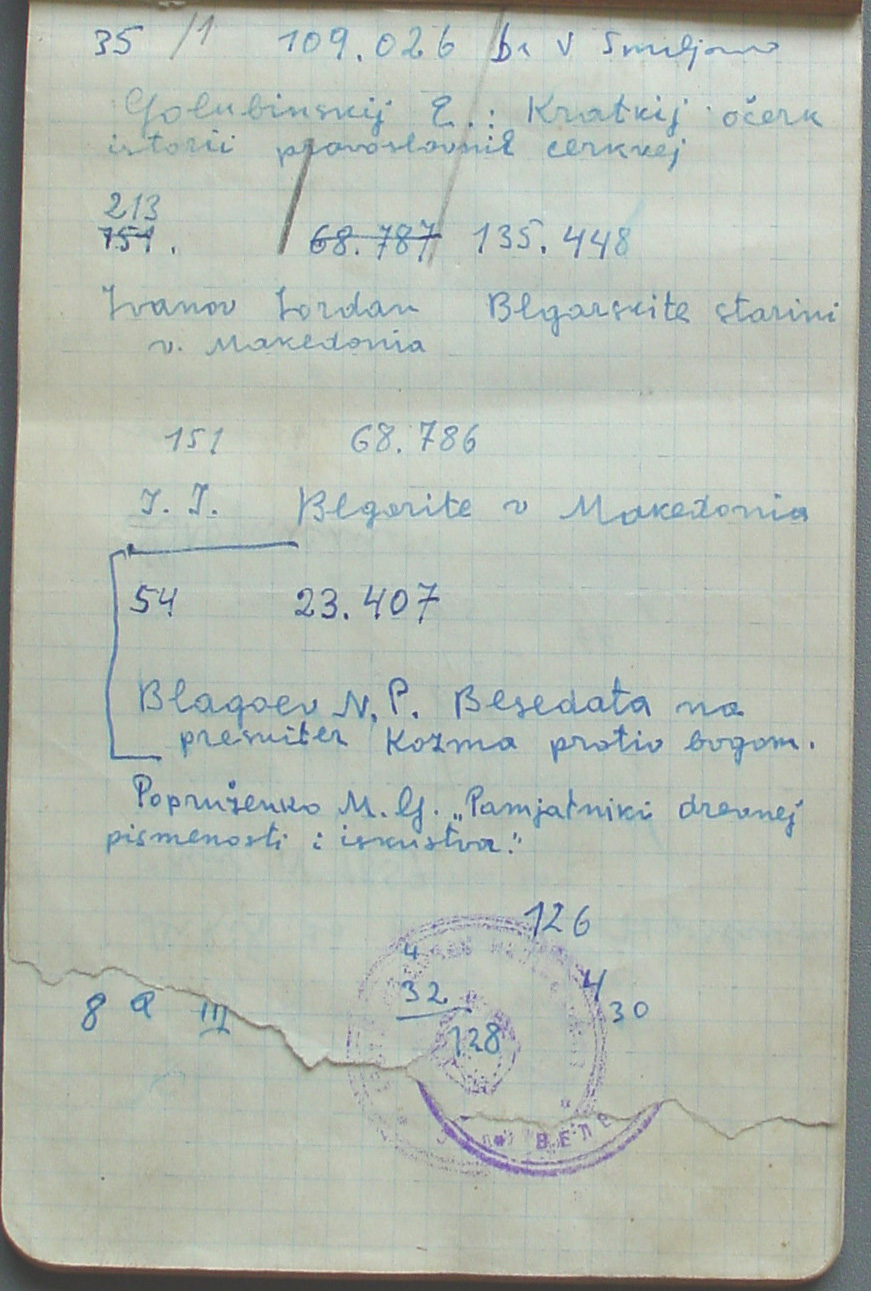 35 /1 109.026 br V Smiljano
Golubinskij E.: Kratkij očerk
istorii pravoslavnih cerkvej
213
151. 68.787 135.448
Ivanov Jordan Blgarskite starini
v. Makedonia
151 68.786
J. I. Blgarite v Makedonia
54 23.407
Blagoev N.P. Besedata na
presviter Kozma protiv bogom.
Popruženko M.G. „Pamjatniki drevnej
pismenosti i iskustva."
126
4
32 4
30
128
8 a III
ВЕЛЕ